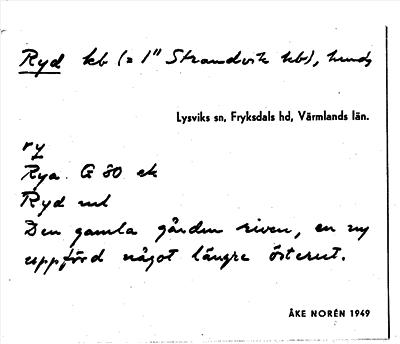 Ryd kb (= 1" Strandvik kb), hmds
Lysviks sn, Fryksdals hd, Värmlands län.
ry
Rya. G 80 ek
Ryd ml
Den gamla gården riven, en ny
uppförd något längre österut.
ÅKE NORÉN 1949